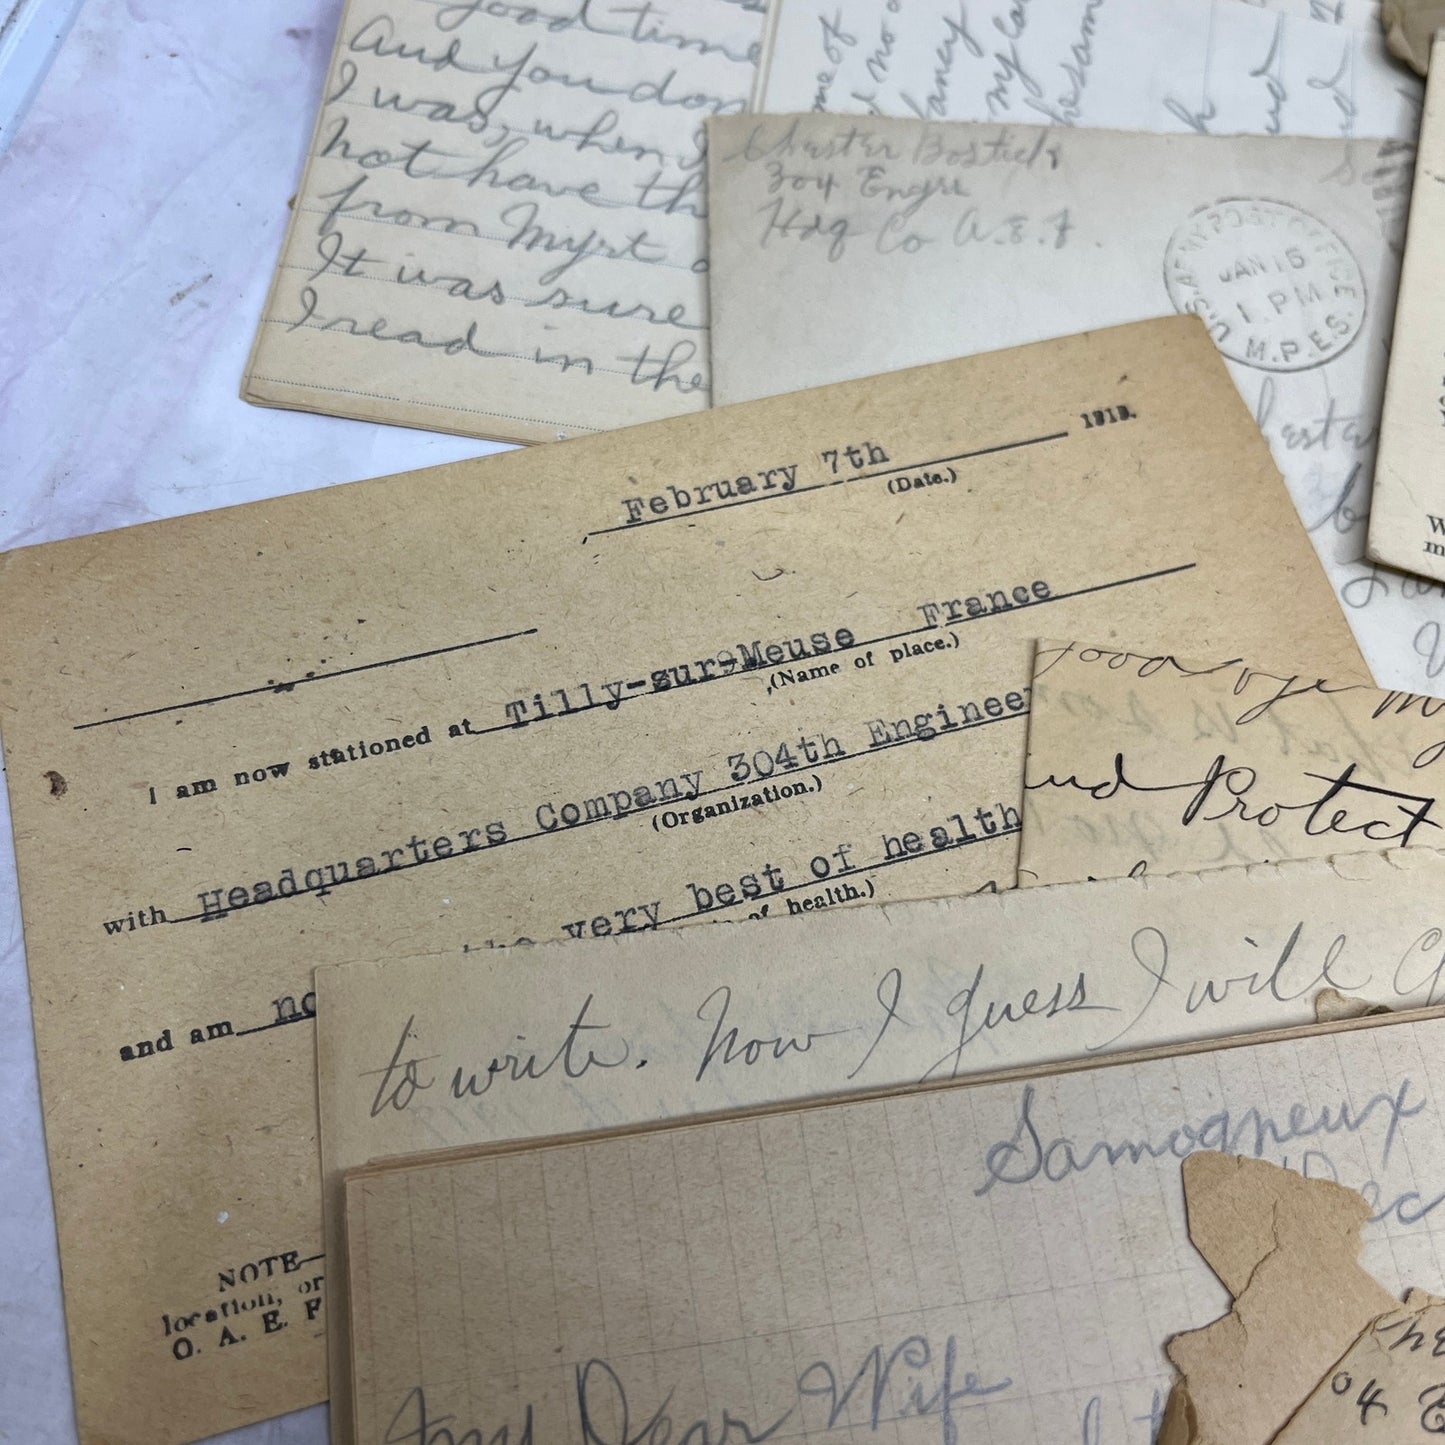 good time
And you don
I was, when I
not have th
from Myrt
It was sure
I read in the
me of
no
hancy
my
hesam
Chester Bostick
304 Engrs
Hdq Co A.E.F.
U.S. ARMY POST OFFICE
JAN 15
1 PM
M.P.E.S.
February 7th 1919.
(Date.)
I am now stationed at Tilly-sur-Meuse France
(Name of place.)
with Headquarters Company 304th Enginee
(Organization.)
and am no the very best of health
of health.)
NOTE—
location, or
O. A. E. F
Good bye
and Protect
to write. Now I guess I will
Samogneux
Dec
My Dear Wife
04 E